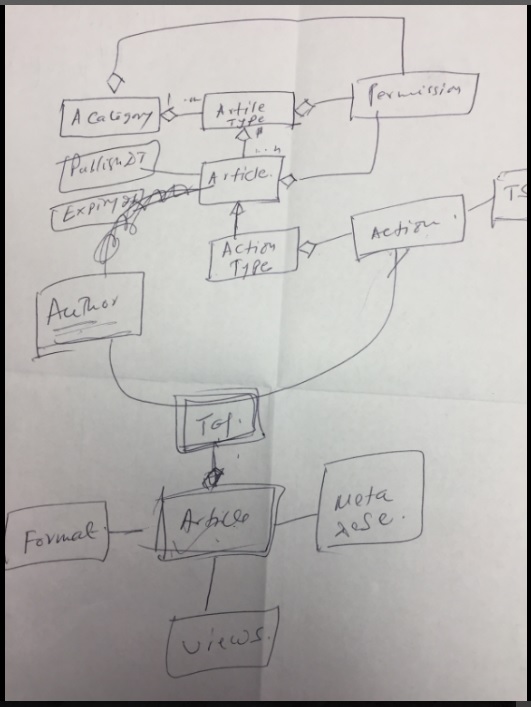 1 ..n
A Category
Article
Type
Permission
..n
Publish DT
Article.
Expiry DT
Action
Type
Action.
TS
Author
Article
Format.
Meta
Views.